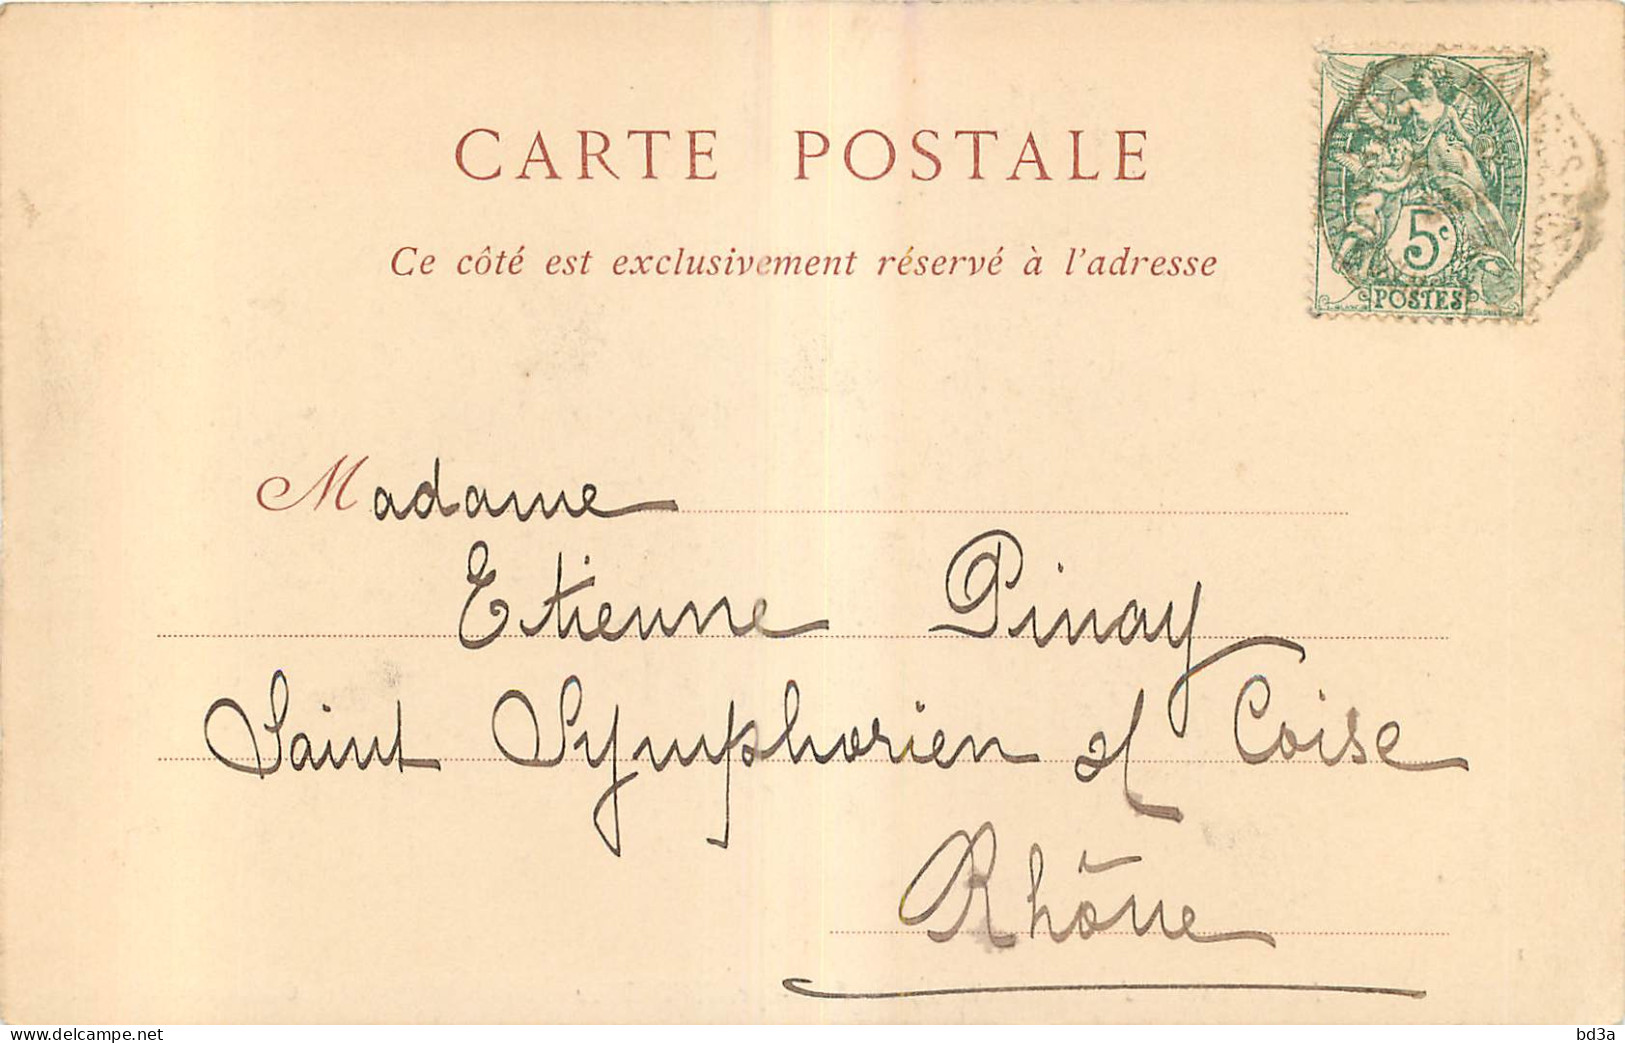 CARTE POSTALE
Ce côté est exclusivement réservé à l'adresse
RÉPUBLIQUE FRANÇAISE
5c
POSTES
Madame
Etienne Pinay
Saint Symphorien s/ Coise
Rhône
www.delcampe.net
bd3a